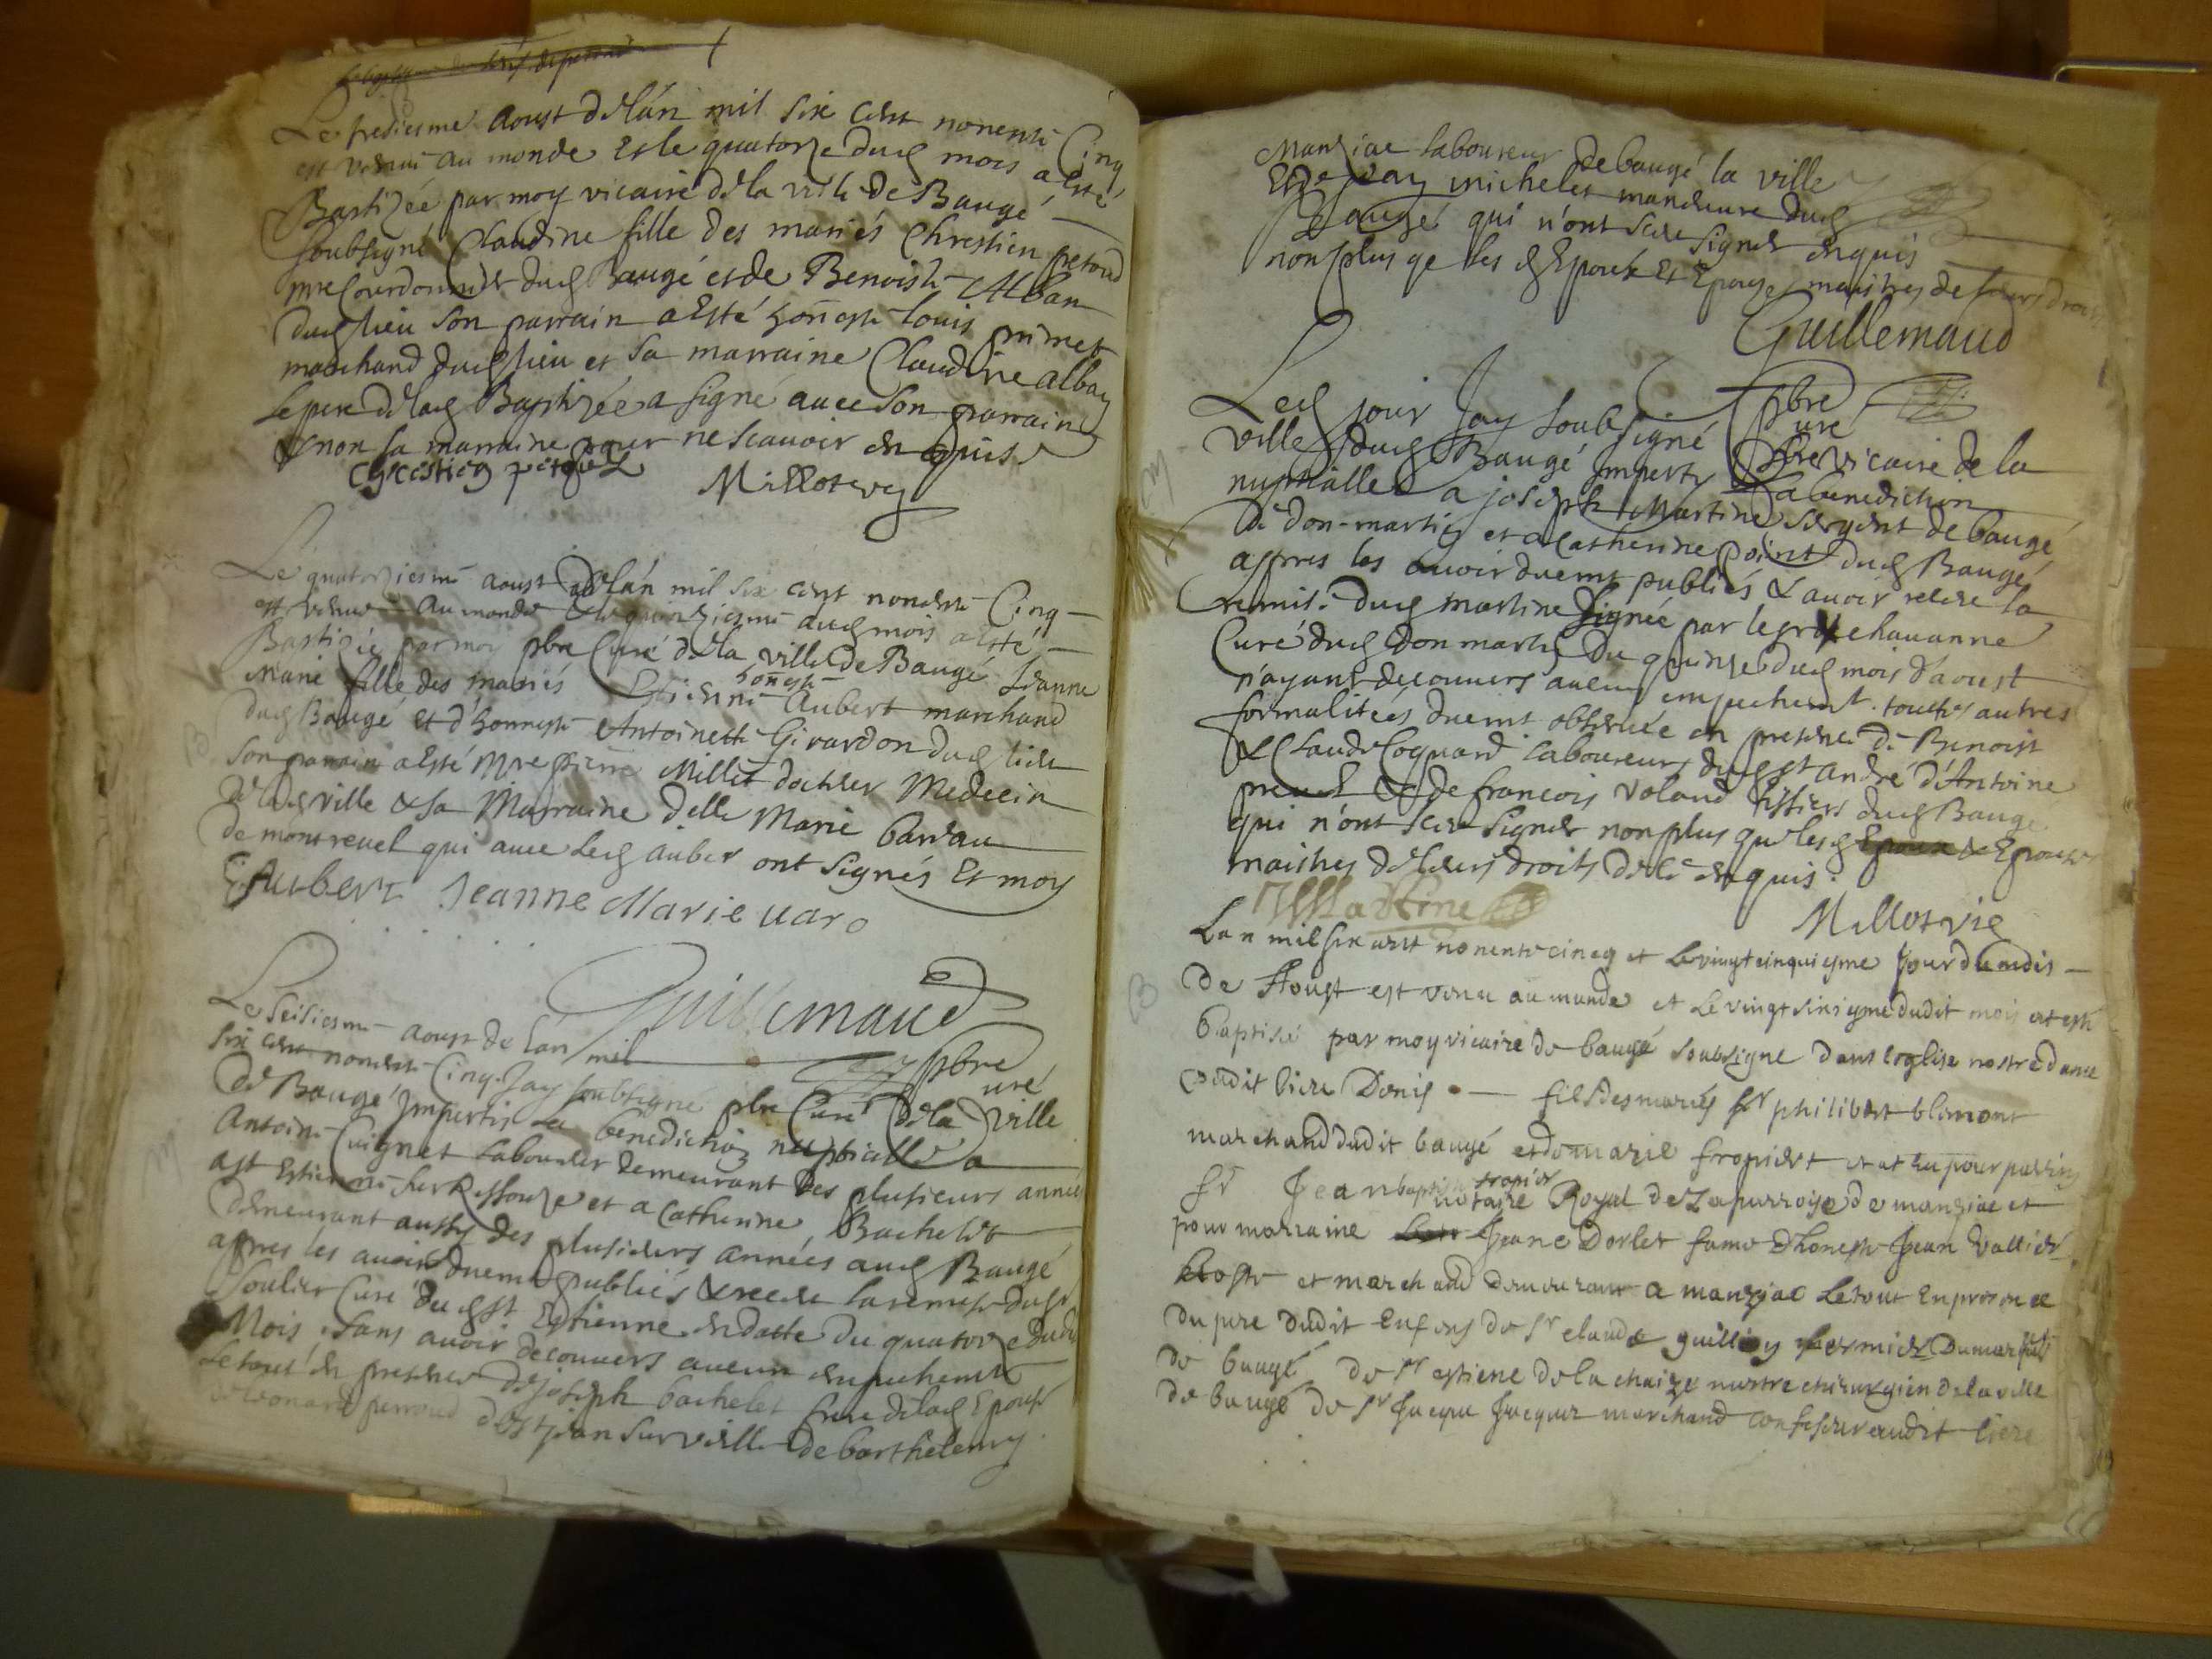 Le tresiesme aoust de l'án mil six cent nonente Cinq
est venue au monde et le quatorze dud mois a esté
Baptizée par moy vicaire de la ville de Baugé
soubsigné Claudine fille des mariés Chrestien petoud
mre Cordonnier dud Baugé et de Benoiste Alban
dud lieu son parrain a esté honeste louis primet
marchand dud lieu et sa marraine Claudine alban
le pere de lad Baptizée a signé avec son parrain
& non sa marraine pour ne scavoir enquis
Millot vic
Le quatorziesme aoust de l'án mil six cent nonente Cinq
est venue au monde & le quinziesme dud mois a esté
Bastizée par moy pbre Curé de la ville de Baugé Jeanne
Marie fille des mariés honeste Estienne Aubert marchand
dud Baugé et d'honneste Antoinette Girardon dud lieu
son parrain a esté Mre pierre Millet docteur Medecin
de lad ville & sa Marraine delle Marie
de montrevel qui avec led auber ont signés Et moy
E Aubert Jeanne Marie
Guillemaud
pbre
curé
Le Seisiesme aoust de l'án mil
six cent nonente Cinq Jay soubsigné pbre Curé de la ville
de Baugé Imperti la benediction nuptialle a
Antoine Cuignet laboureur demeurant des plusieurs années
a st Estienne sur Reyssouze et a Catherine Bachelet
demeurant aussy des plusieurs années aud Baugé
apres les avoir duemt publiés & receu la remise du sr
Soulier Curé dud st Estienne en datte du quatorze dudt
Mois, sans avoir decouvers aucun empechemt
le tout en presence de joseph bachelet frere de lad Epouse
de leonard perroud de st jean sur veille de barthelemy
Manziac laboureur de baugé la ville
Et de micheles manoeuvre dud
Baugé qui n'ont sceu signer enquis
non plus qe les d Epoux Et Epouse maistres de leurs droits
Guillemaud
pbre
curé
Led jour Jay soubsigné pbre vicaire de la
ville dud Baugé Imperty la benediction
nuptialle a joseph Martine sergent de baugé
de Don-martin et a Catherine point dud Baugé
appres les avoir duemt publiés & avoir receu la
remise dud Martine signée par le sr de chavanne
Curé dud Don martin du quinze dud mois d'aoust
n'ayant decouvers aucun empechemt. touttes autres
formalitées duemt observée en presence de Benoist
& Claude Coquard laboureurs dud st andré d'Antoine
& de francois voland tissiers dud Baugé
qui n'ont sceu signer non plus que les d Epoux & Epouse
maistres de leurs droits de ce enquis.
JMartine
Millot vic
Lan mil six cent nonente cincq et le vingt cinquiesme jour du mois
de Aoust est venu au monde et le vingt sixiesme dudit mois at esté
baptisé par moy vicaire de baugé soubsigne dans leglise nostre dame
dudit lieu Denis fils des mariés sr philibert blemont
marchand dudit baugé et de marie fropiert et at eu pour parrin
sr Jean baptiste fropier notaire Royal de la parroisse de manziac et
pour marraine Jeane Dorlet fame dhoneste Jean Vallier
hoste et marchand demeurant a manziac le tout en presence
du pere dudit Enfens de sr claude guillion fermier du marquisat
de baugé de sr estiene de la chaize maistre chirurgien de la ville
de baugé de sr Jacque Jacquer marchand confiseur audit liere